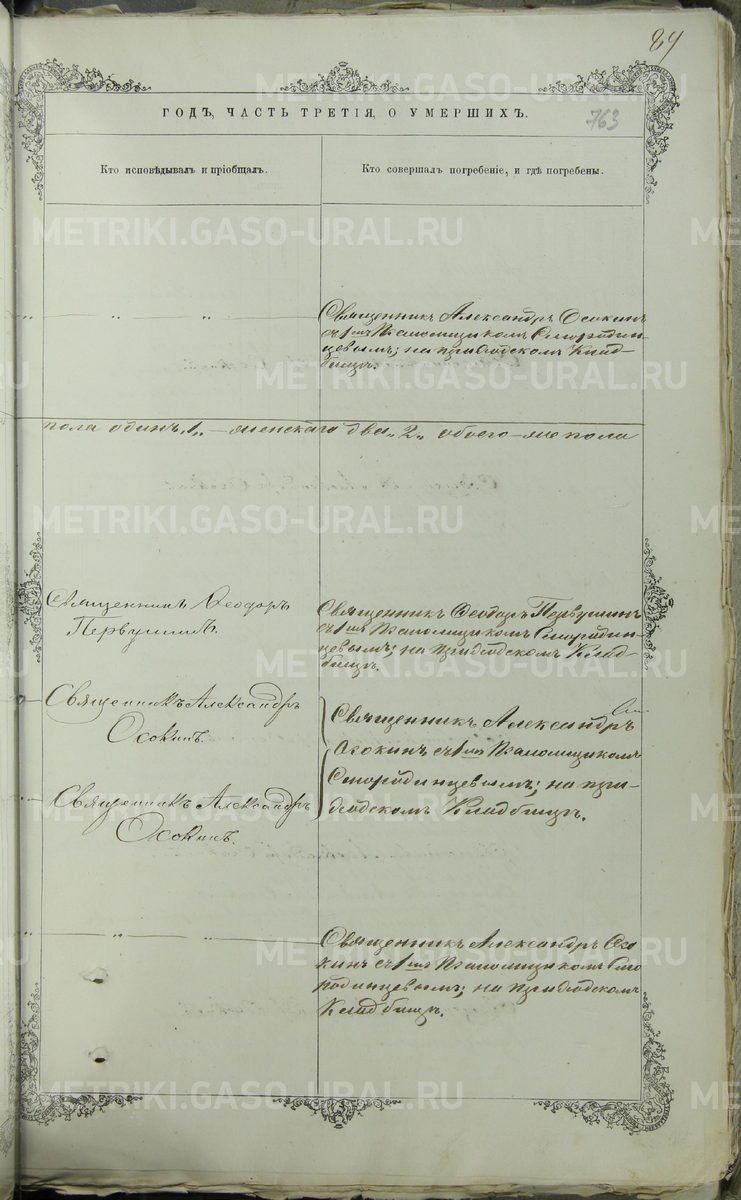 84
ГОДЪ, ЧАСТЬ ТРЕТІЯ, О УМЕРШИХЪ.
763
Кто исповѣдывалъ и пріобщалъ.
Кто совершалъ погребеніе, и гдѣ погребены.
" " "
Священникъ Александръ Осокинъ
съ 1мъ Псаломщикомъ Смородин-
цевымъ; на приходскомъ Клад-
бищѣ.
пола одинъ „1„ — женскаго два „2„ обоего-же пола
Священникъ Ѳеодоръ
Первушинъ.
Священникъ Ѳеодоръ Первушинъ
съ 1мъ Псаломщикомъ Смородин-
цевымъ; на приходскомъ Клад-
бищѣ.
Священникъ Александръ
Осокинъ.
Священникъ Александръ
Осокинъ съ 1мъ Псаломщикомъ
Смородинцевымъ; на при-
ходскомъ Кладбищѣ.
Священникъ Александръ
Осокинъ.
" " "
Священникъ Александръ Осо
кинъ съ 1мъ Псаломщикомъ Смо
родинцевымъ; на приходскомъ
Кладбищѣ.
METRIKI.GASO-URAL.RU